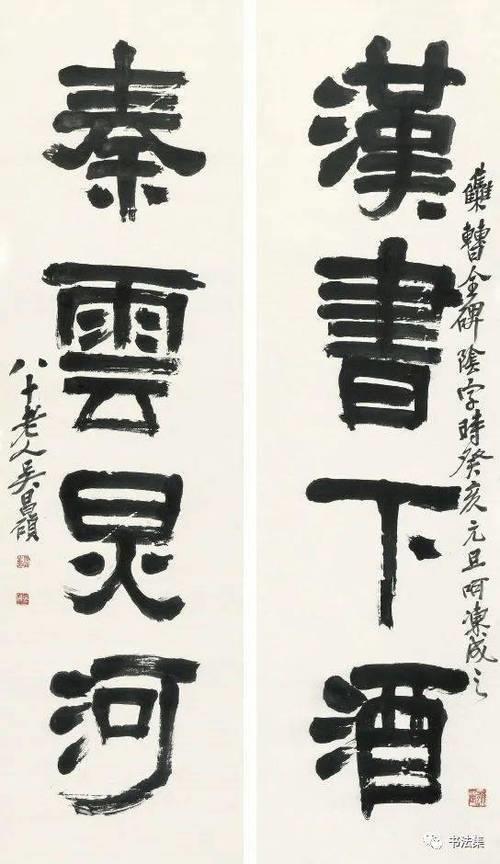 漢書下酒
集曹全碑陰字時癸亥元旦呵凍成之
秦雲炅河
八十老人吳昌碩
书法集